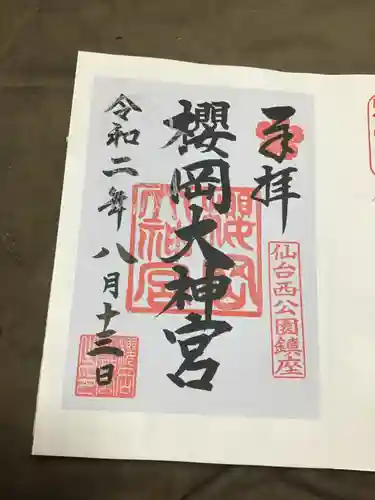 奉拝
仙台西公園鎮座
櫻岡大神宮
櫻岡大神宮
令和二年八月十三日